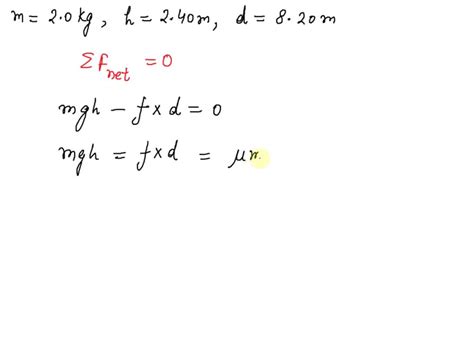 m = 2.0 kg, h = 2.40 m, d = 8.20 m
Σ F_net = 0
mgh − f × d = 0
mgh = f × d = μ m